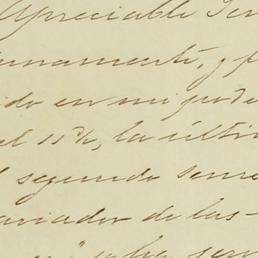 Apreciable Señ
rnamente, y p
ido en mi pode
el 15%, la últi
l segundo seme
ariador de las